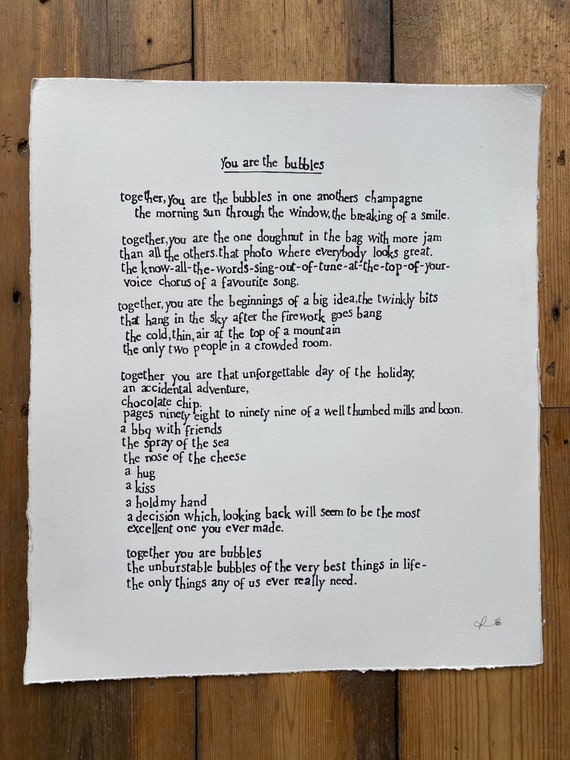 You are the bubbles
together, you are the bubbles in one anothers champagne
the morning sun through the window, the breaking of a smile.
together, you are the one doughnut in the bag with more jam
than all the others. that photo where everybody looks great.
the know-all-the-words-sing-out-of-tune-at-the-top-of-your-
voice chorus of a favourite song.
together, you are the beginnings of a big idea, the twinkly bits
that hang in the sky after the firework goes bang
the cold, thin, air at the top of a mountain
the only two people in a crowded room.
together you are that unforgettable day of the holiday,
an accidental adventure,
chocolate chip.
pages ninety eight to ninety nine of a well thumbed mills and boon.
a bbq with friends
the spray of the sea
the nose of the cheese
a hug
a kiss
a hold my hand
a decision which, looking back will seem to be the most
excellent one you ever made.
together you are bubbles
the unburstable bubbles of the very best things in life-
the only things any of us ever really need.